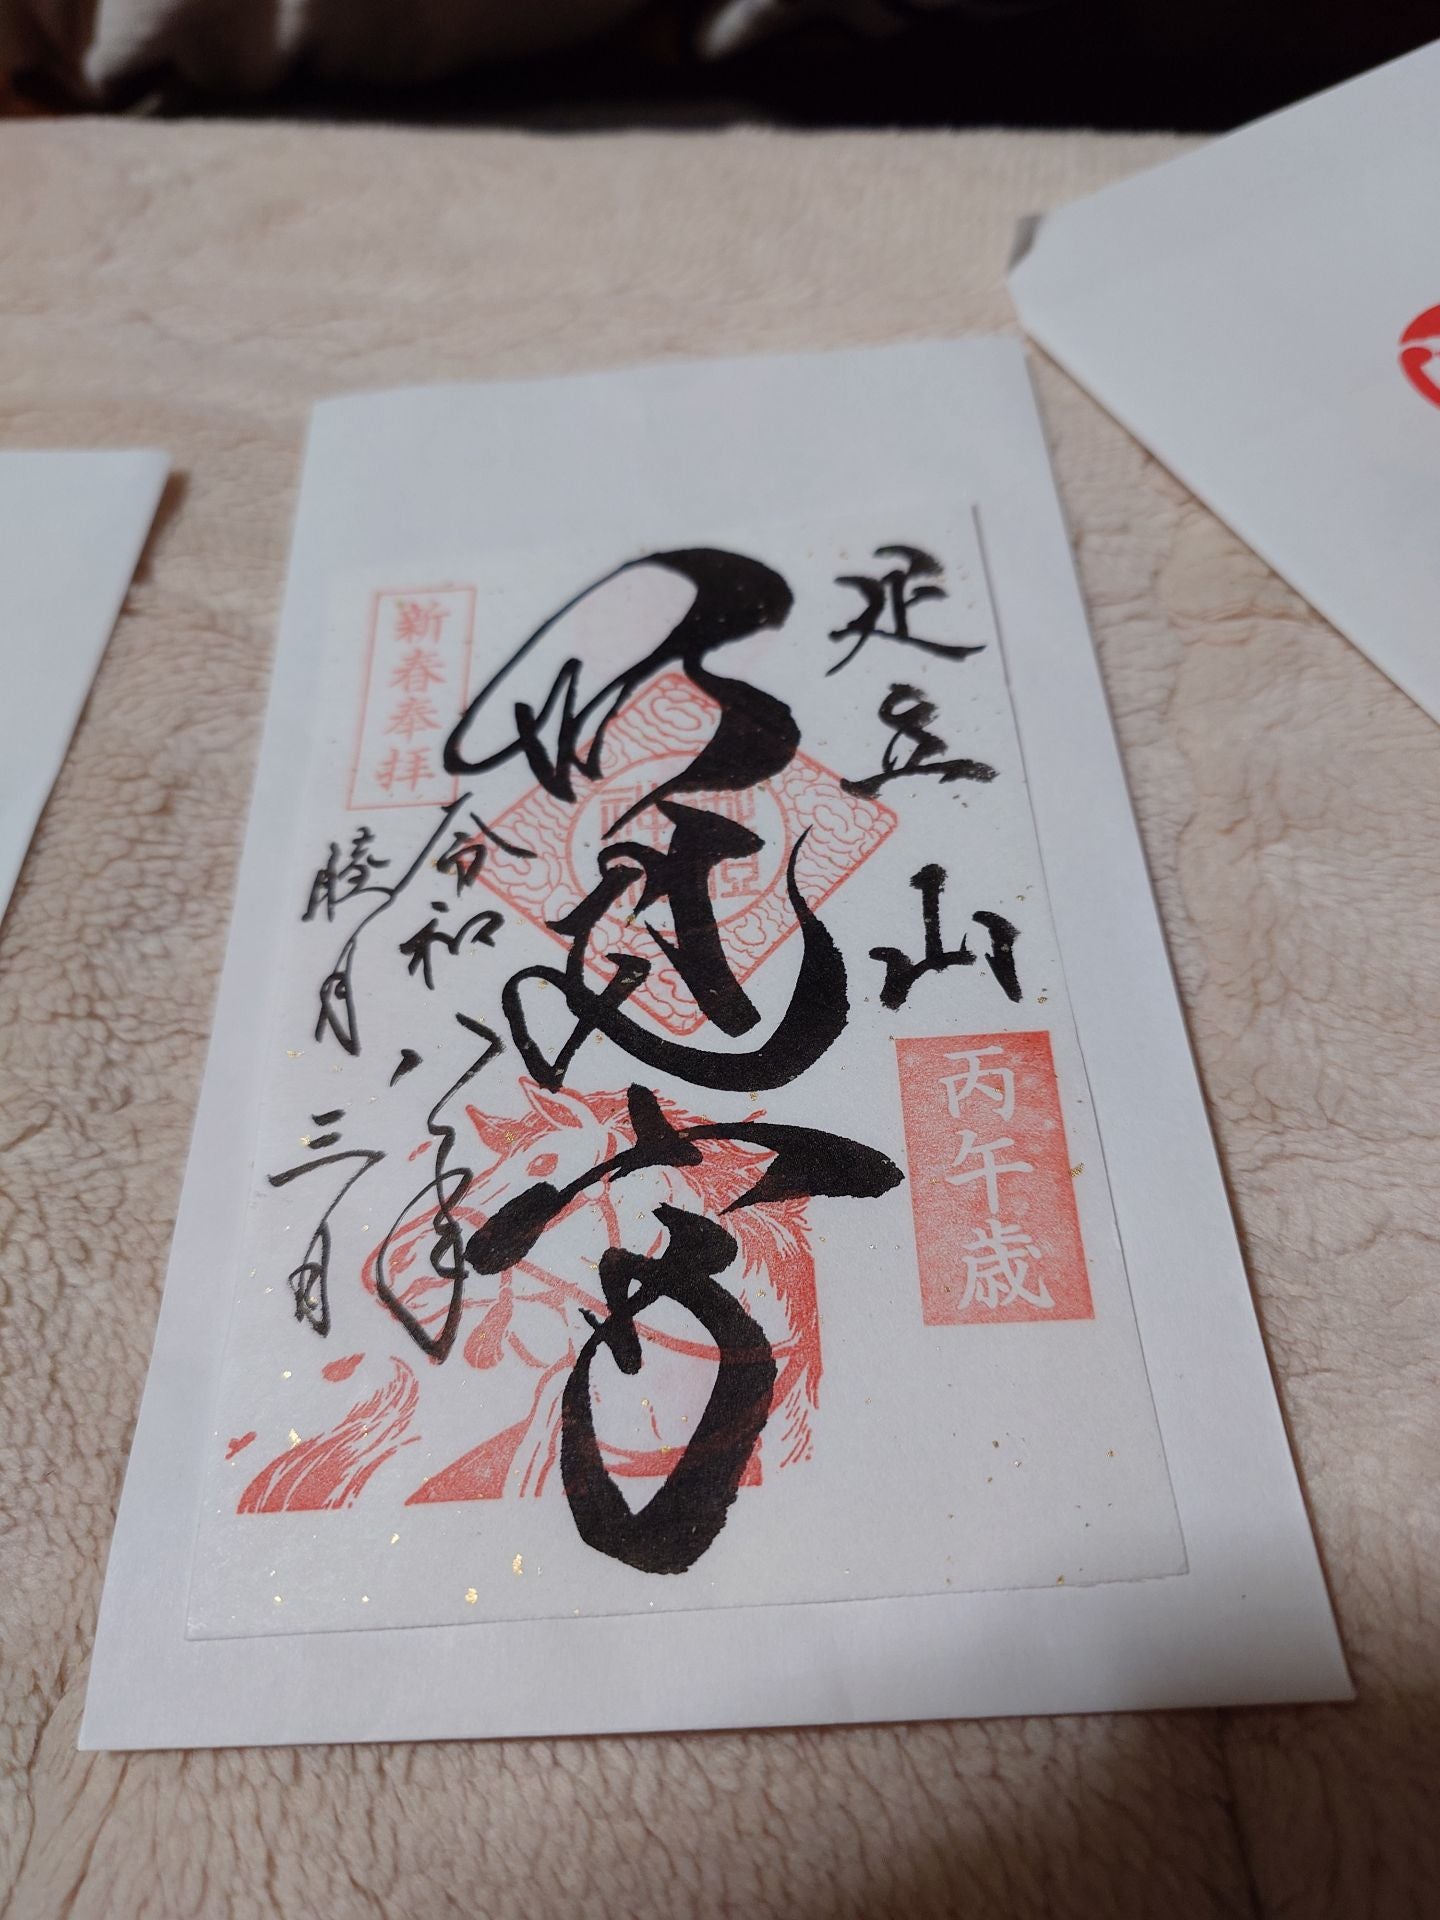 足立山
丙午歳
妙見宮
新春奉拝
令和八年
睦月三日